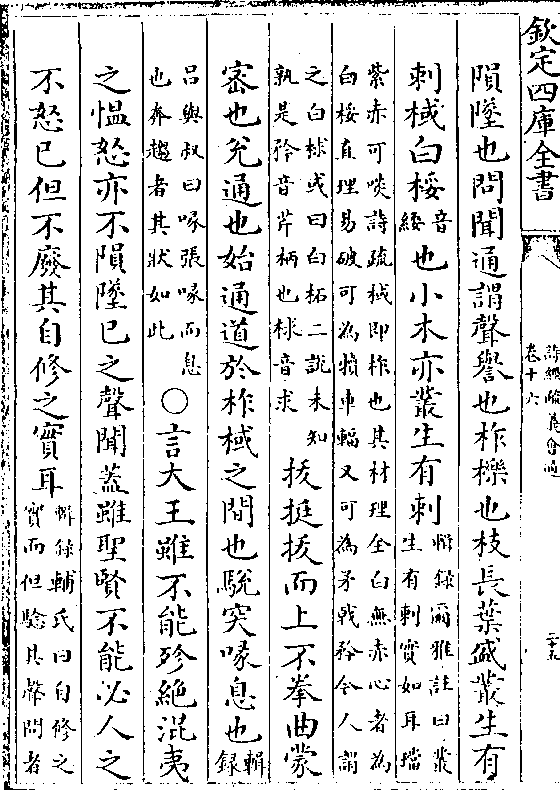 欽定四庫全書
詩經疏義會通
卷十六
二十五
隕墜也問聞通謂聲譽也柞櫟也枝長葉盛叢生有
刺棫白桵
音
綏
也小木亦叢生有刺
輯録爾雅註曰叢
生有刺實如耳璫
紫赤可啖詩疏棫即柞也其材理全白無赤心者為
白桵直理易破可為犢車輻又可為矛㦸矜今人謂
之白梂或曰白柘二說未知
孰是矜音芹柄也梂音求
拔挺拔而上不拳曲蒙
宻也兊通也始通道於柞棫之間也駾突喙息也
輯
録
吕與叔曰喙張喙而息
也奔趨者其狀如此
○言大王雖不能殄絶混夷
之愠怒亦不隕墜已之聲聞蓋雖聖賢不能必人之
不怒已但不廢其自修之實耳
輯録輔氏曰自修之
實而但驗其聲問者